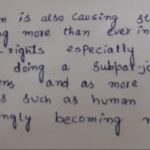 is also causing
ng more than ever in
-rights especially
doing a subpar-jo
ens and as more
s such as human
ngly becoming